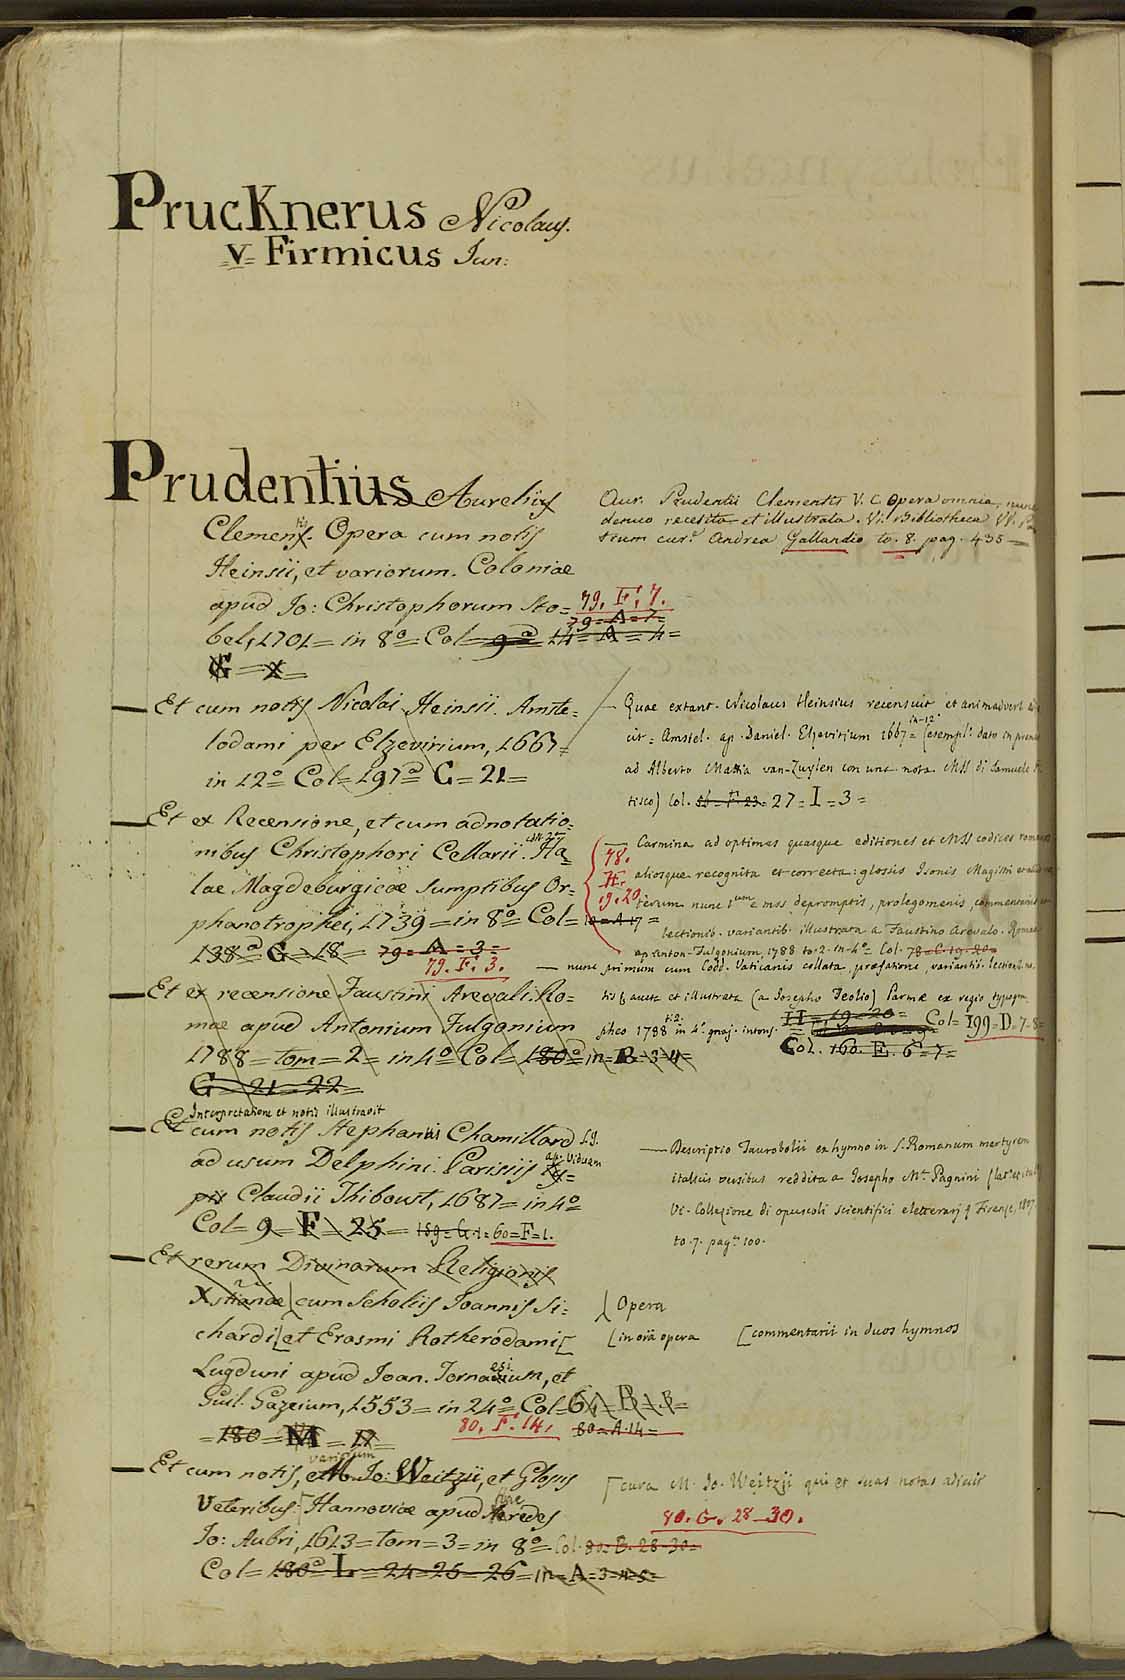 Prucknerus Nicolaus.
v= Firmicus Iun:
Prudentius Aurelius
Clemens. Opera cum notis
Heinsii, et variorum. Coloniae
apud Io: Christophorum Sto=
79. F. 7.
79=A=7=
bel, 1701= in 8°= Col= 9= 14=A=4=
G=X=
Aur. Prudentii Clementis V. C. Opera omnia, nunc
denuo recesita et illustrata. Vi. Bibliotheca VV. Pa
trum cur. Andrea Gallandio to. 8. pag. 435
Et cum notis Nicolai Heinsii. Amste=
lodami per Elzevirium, 1667=
in 12°= Col= 197= G=21=
— Quae extant. Nicolaus Heinsius recensuit et animadvers.
cit= Amstel. ap. Daniel. Elzevirium 1667= in-12° (esempl. dato in premio
ad Alberto Mattia van-Zuylen con une nota MSS di Samuele
tisco) Col. 27=I=3=
Et ex Recensione, et cum adnotatio=
nibus Christophori Cellarii. Ha=
lae Magdeburgicae sumptibus Or=
phanotrophei, 1739= in 8°= Col= 10=A=17=
138= G=18= 79=A=3=
79. F. 3.
78.
H.
19.20
— Carmina ad optimas quasque editiones et MSS codices roman
aliosque recognita et correcta: glossis Isonis Magistri
terum nunc 1um e mss depromptis, prolegomenis, commentariis
lectionib. variantib. illustrata a Faustino Arevalo. Romae
ap. Anton. Fulgonium, 1788 to. 2. in-4°= Col. 78=C.19.20=
— nunc primum cum Codd. Vaticanis collata, praefatione, variantib. lectionib.
tis aucta et illustrata (a Iosepho Teolio) Parmae ex regio typogra
pheo 1788 t. 2. in 4°. H=19=20= Col= 199=D=7=8=
Col. 160. E. 6=7=
Et ex recensione Faustini Arevali. Ro=
mae apud Antonium Fulgonium
1788= tom=2= in 4°= Col= 180= in=B=3=4=
G=21=22=
Interpretatione et notis illustravit
Et cum notis Stephanus Chamillard S.J.
ad usum Delphini. Parisiis ap. Viduam
Claudii Thiboust, 1687= in 4°=
Col= 9=F=25= 159=G.1= 60=F=1.
— Descriptio Taurobolii ex hymno in S. Romanum martyrem
italicis versibus reddita a Iosepho Ma. Pagnini
Vi. Collezione di opuscoli scientifici e letterarj Firenze, 1807
to. 7. pag. 100.
Et rerum Divinarum Religionis
Xstianae cum Scholiis Ioannis Si=
chardi et Erasmi Rotherodami
Lugduni apud Ioan. Tornaesium, et
Guil. Gazeium, 1553= in 24°= Col= 64=B=
80. F. 14. 80=A.14=
=180=M=17=
Opera
[in oīa opera [commentarii in duos hymnos
Et cum notis variorum Io: Weitzii, et Glosis
Veteribus: Hannoviae apud Haeredes
Io: Aubri, 1613= tom=3= in 8°= Col. 80=B.28-30=
Col= 180= L=24=25=26= in=A=3=4=5=
[cura M. Io. Weitzii qui et suas notas adiecit
80. G. 28-30.